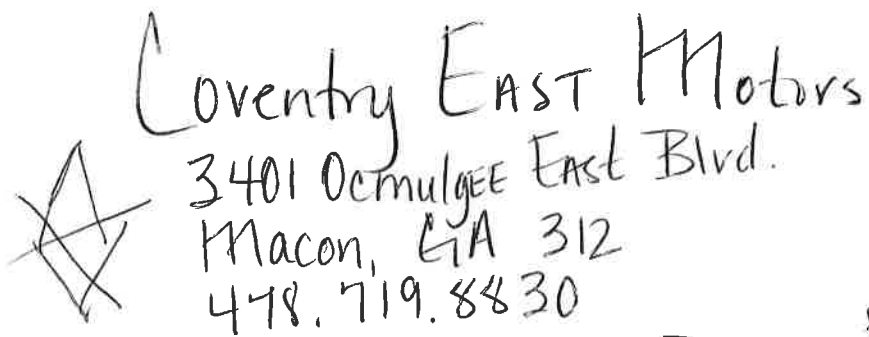 Coventry EAST Motors
3401 OcmulgEE East Blvd.
Macon, GA 312
478.719.8830